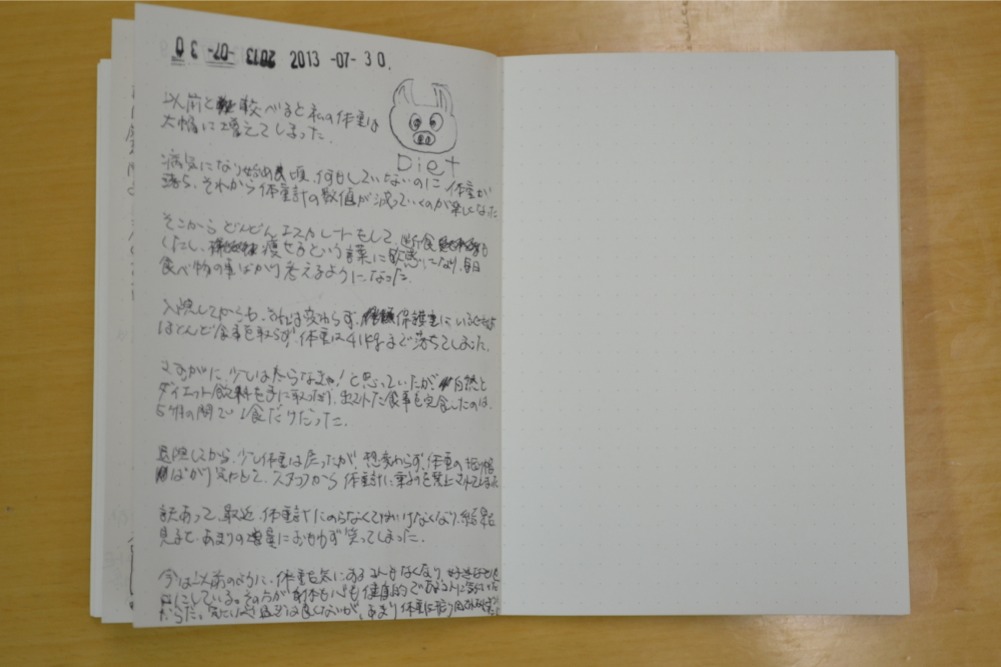 2013 -07- 30.
Diet
以前と較べると私の体重は
大幅に増えてしまった。
病気になり始めた頃、何もしていないのに体重が
落ち、それから体重計の数値が減っていくのが楽しくなった
そこからどんどんエスカレートをして、断食
したし、痩せるという言葉に敏感になり、毎日
食べ物の事ばかり考えるようになった。
入院してからも、それは変わらず、保護室にいる
ほとんど食事を取らず、体重は41kgまで落ちてしまった。
さすがに、少しは太らなきゃ!と思っていたが、自然と
ダイエット飲料を手に取ったり、出された食事を完食したのは、
5ヶ月の間で1食だけだった。
退院してから、少し体重は戻ったが、相変わらず、体重の
ばかり気にして、スタッフから体重計に乗るのを禁止されてしまった
訳あって、最近、体重計にのらなくてはいけなくなり、結果を
見ると、あまりの増量におもわず笑ってしまった。
今は以前のように、体重を気にすることもなくなり、
にしている。その方が身体も心も健康的であることに気付いた
だった。良くないが、あまり体重に